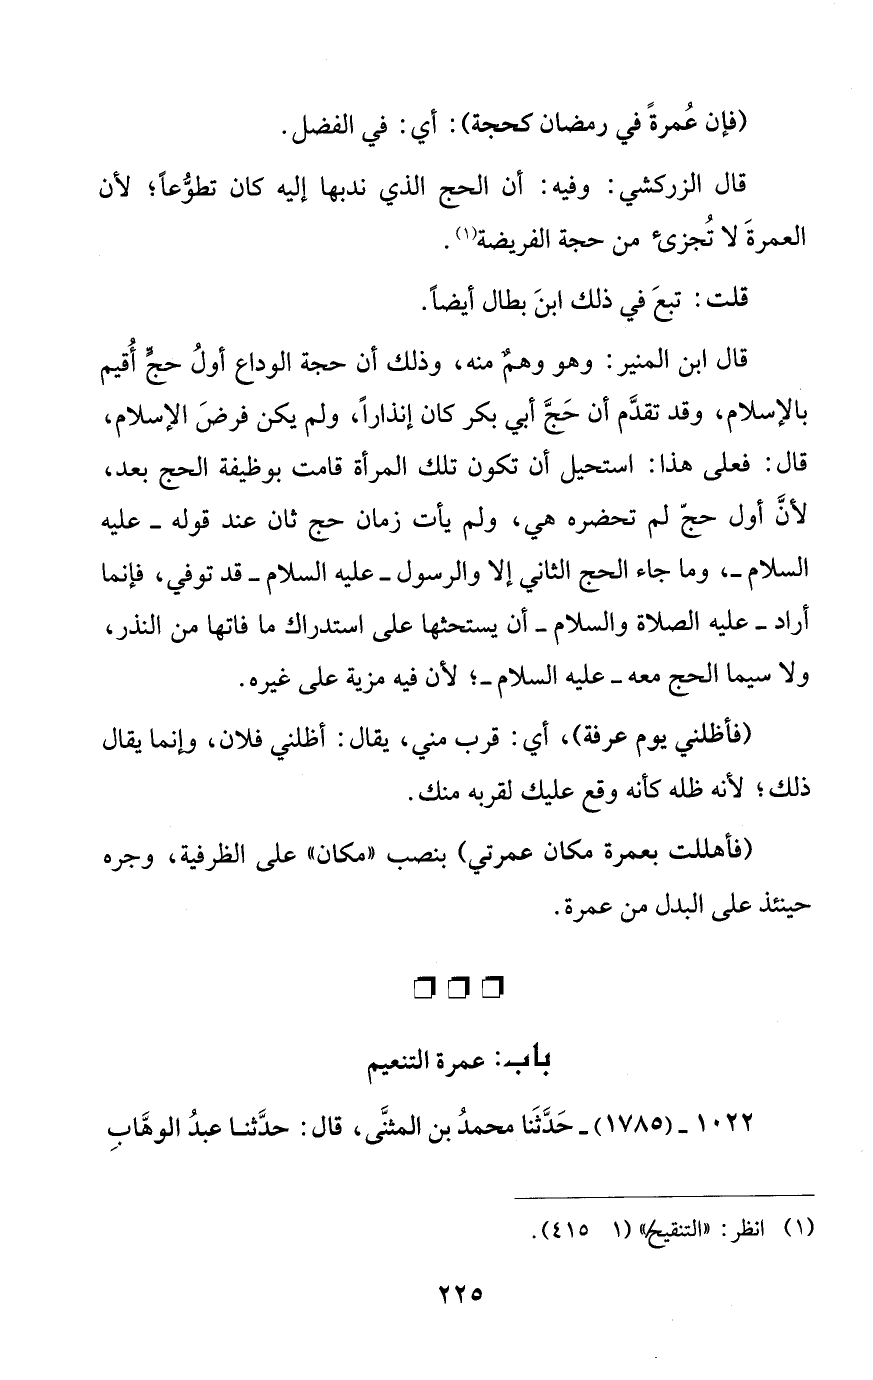 (فإن عُمرةً في رمضان كحجة): أي: في الفضل.
قال الزركشي: وفيه: أن الحج الذي ندبها إليه كان تطوُّعاً؛ لأن
العمرةَ لا تُجزىء من حجة الفريضة(١).
قلت: تبعَ في ذلك ابنَ بطال أيضاً.
قال ابن المنير: وهو وهمٌ منه، وذلك أن حجة الوداع أولُ حجٍّ أُقيم
بالإسلام، وقد تقدَّم أن حَجَّ أبي بكر كان إنذاراً، ولم يكن فرضَ الإسلام،
قال: فعلى هذا: استحيل أن تكون تلك المرأة قامت بوظيفة الحج بعد،
لأنَّ أول حجّ لم تحضره هي، ولم يأت زمان حج ثان عند قوله ـ عليه
السلام ـ، وما جاء الحج الثاني إلا والرسول ـ عليه السلام ـ قد توفي، فإنما
أراد ـ عليه الصلاة والسلام ـ أن يستحثها على استدراك ما فاتها من النذر،
ولا سيما الحج معه ـ عليه السلام ـ؛ لأن فيه مزية على غيره.
(فأظلني يوم عرفة)، أي: قرب مني، يقال: أظلني فلان، وإنما يقال
ذلك؛ لأنه ظله كأنه وقع عليك لقربه منك.
(فأهللت بعمرة مكان عمرتي) بنصب «مكان» على الظرفية، وجره
حينئذ على البدل من عمرة.
باب: عمرة التنعيم
١٠٢٢ ـ (١٧٨٥) ـ حَدَّثَنا محمدُ بن المثنَّى، قال: حدَّثنا عبدُ الوهَّابِ
(١) انظر: «التنقيح» (١ ٤١٥).
٢٢٥